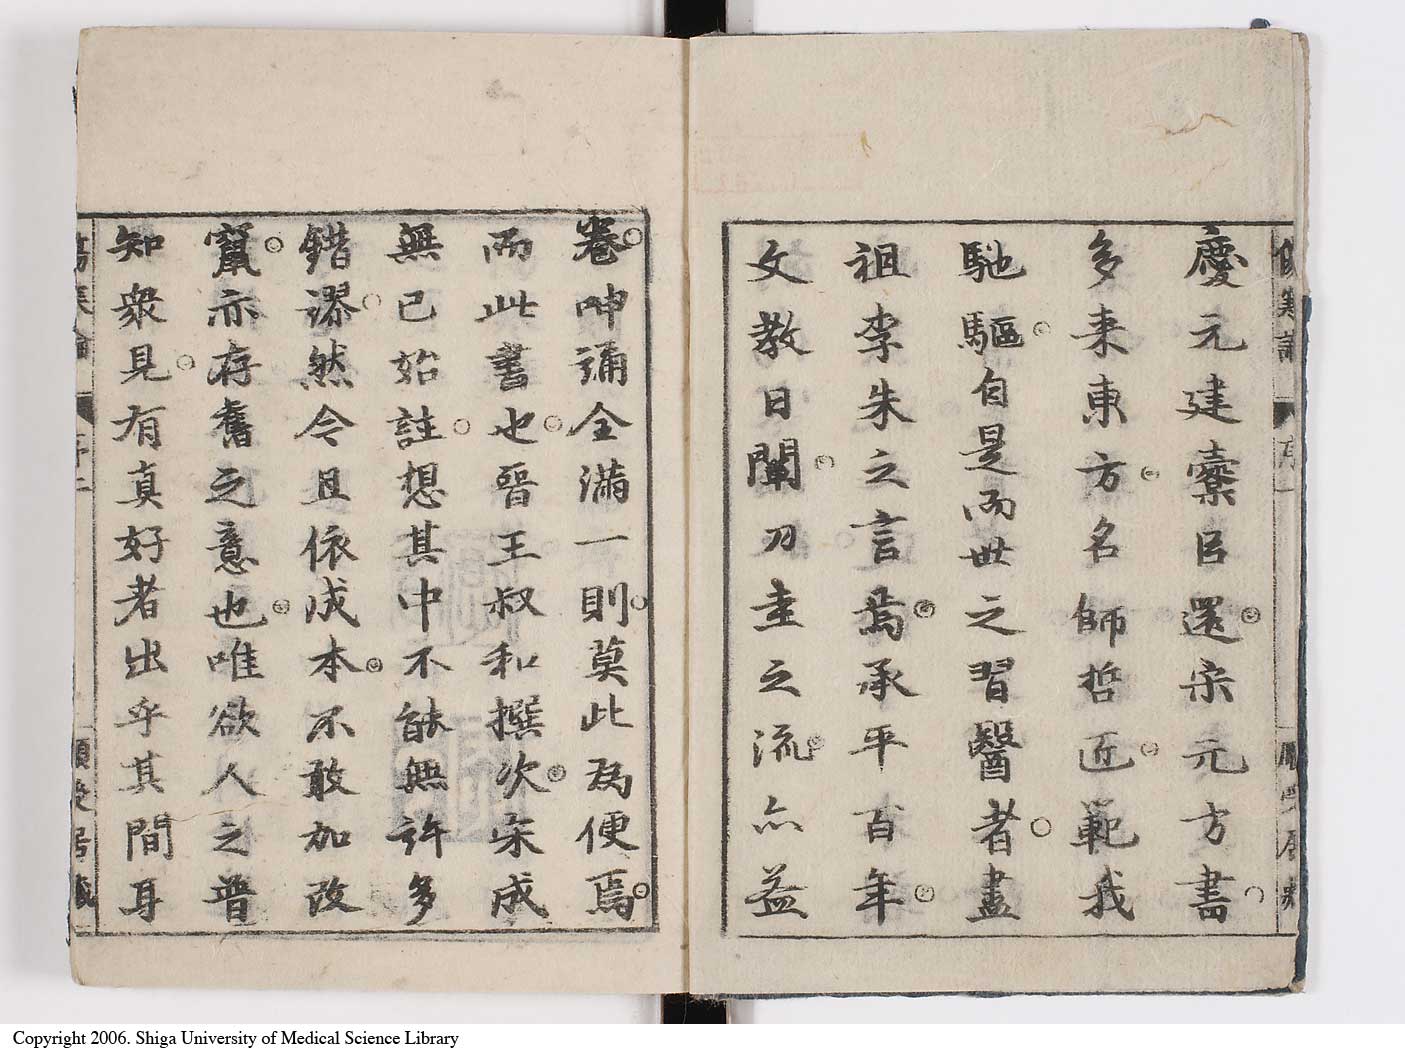 慶元建櫜㠯還宋元方書
多来東方名師哲匠範我
馳驅自是而世之習醫者盡
祖李朱之言焉承平百年
文教日闡刀圭之流亦益
卷呻誦全滿一則莫此為便焉
而此書也晉王叔和撰次宋成
無已始註想其中不能無許多
錯謬然今且依成本不敢加改
竄亦存舊之意也唯欲人之普
知衆見有真好者出乎其間耳
Copyright 2006. Shiga University of Medical Science Library